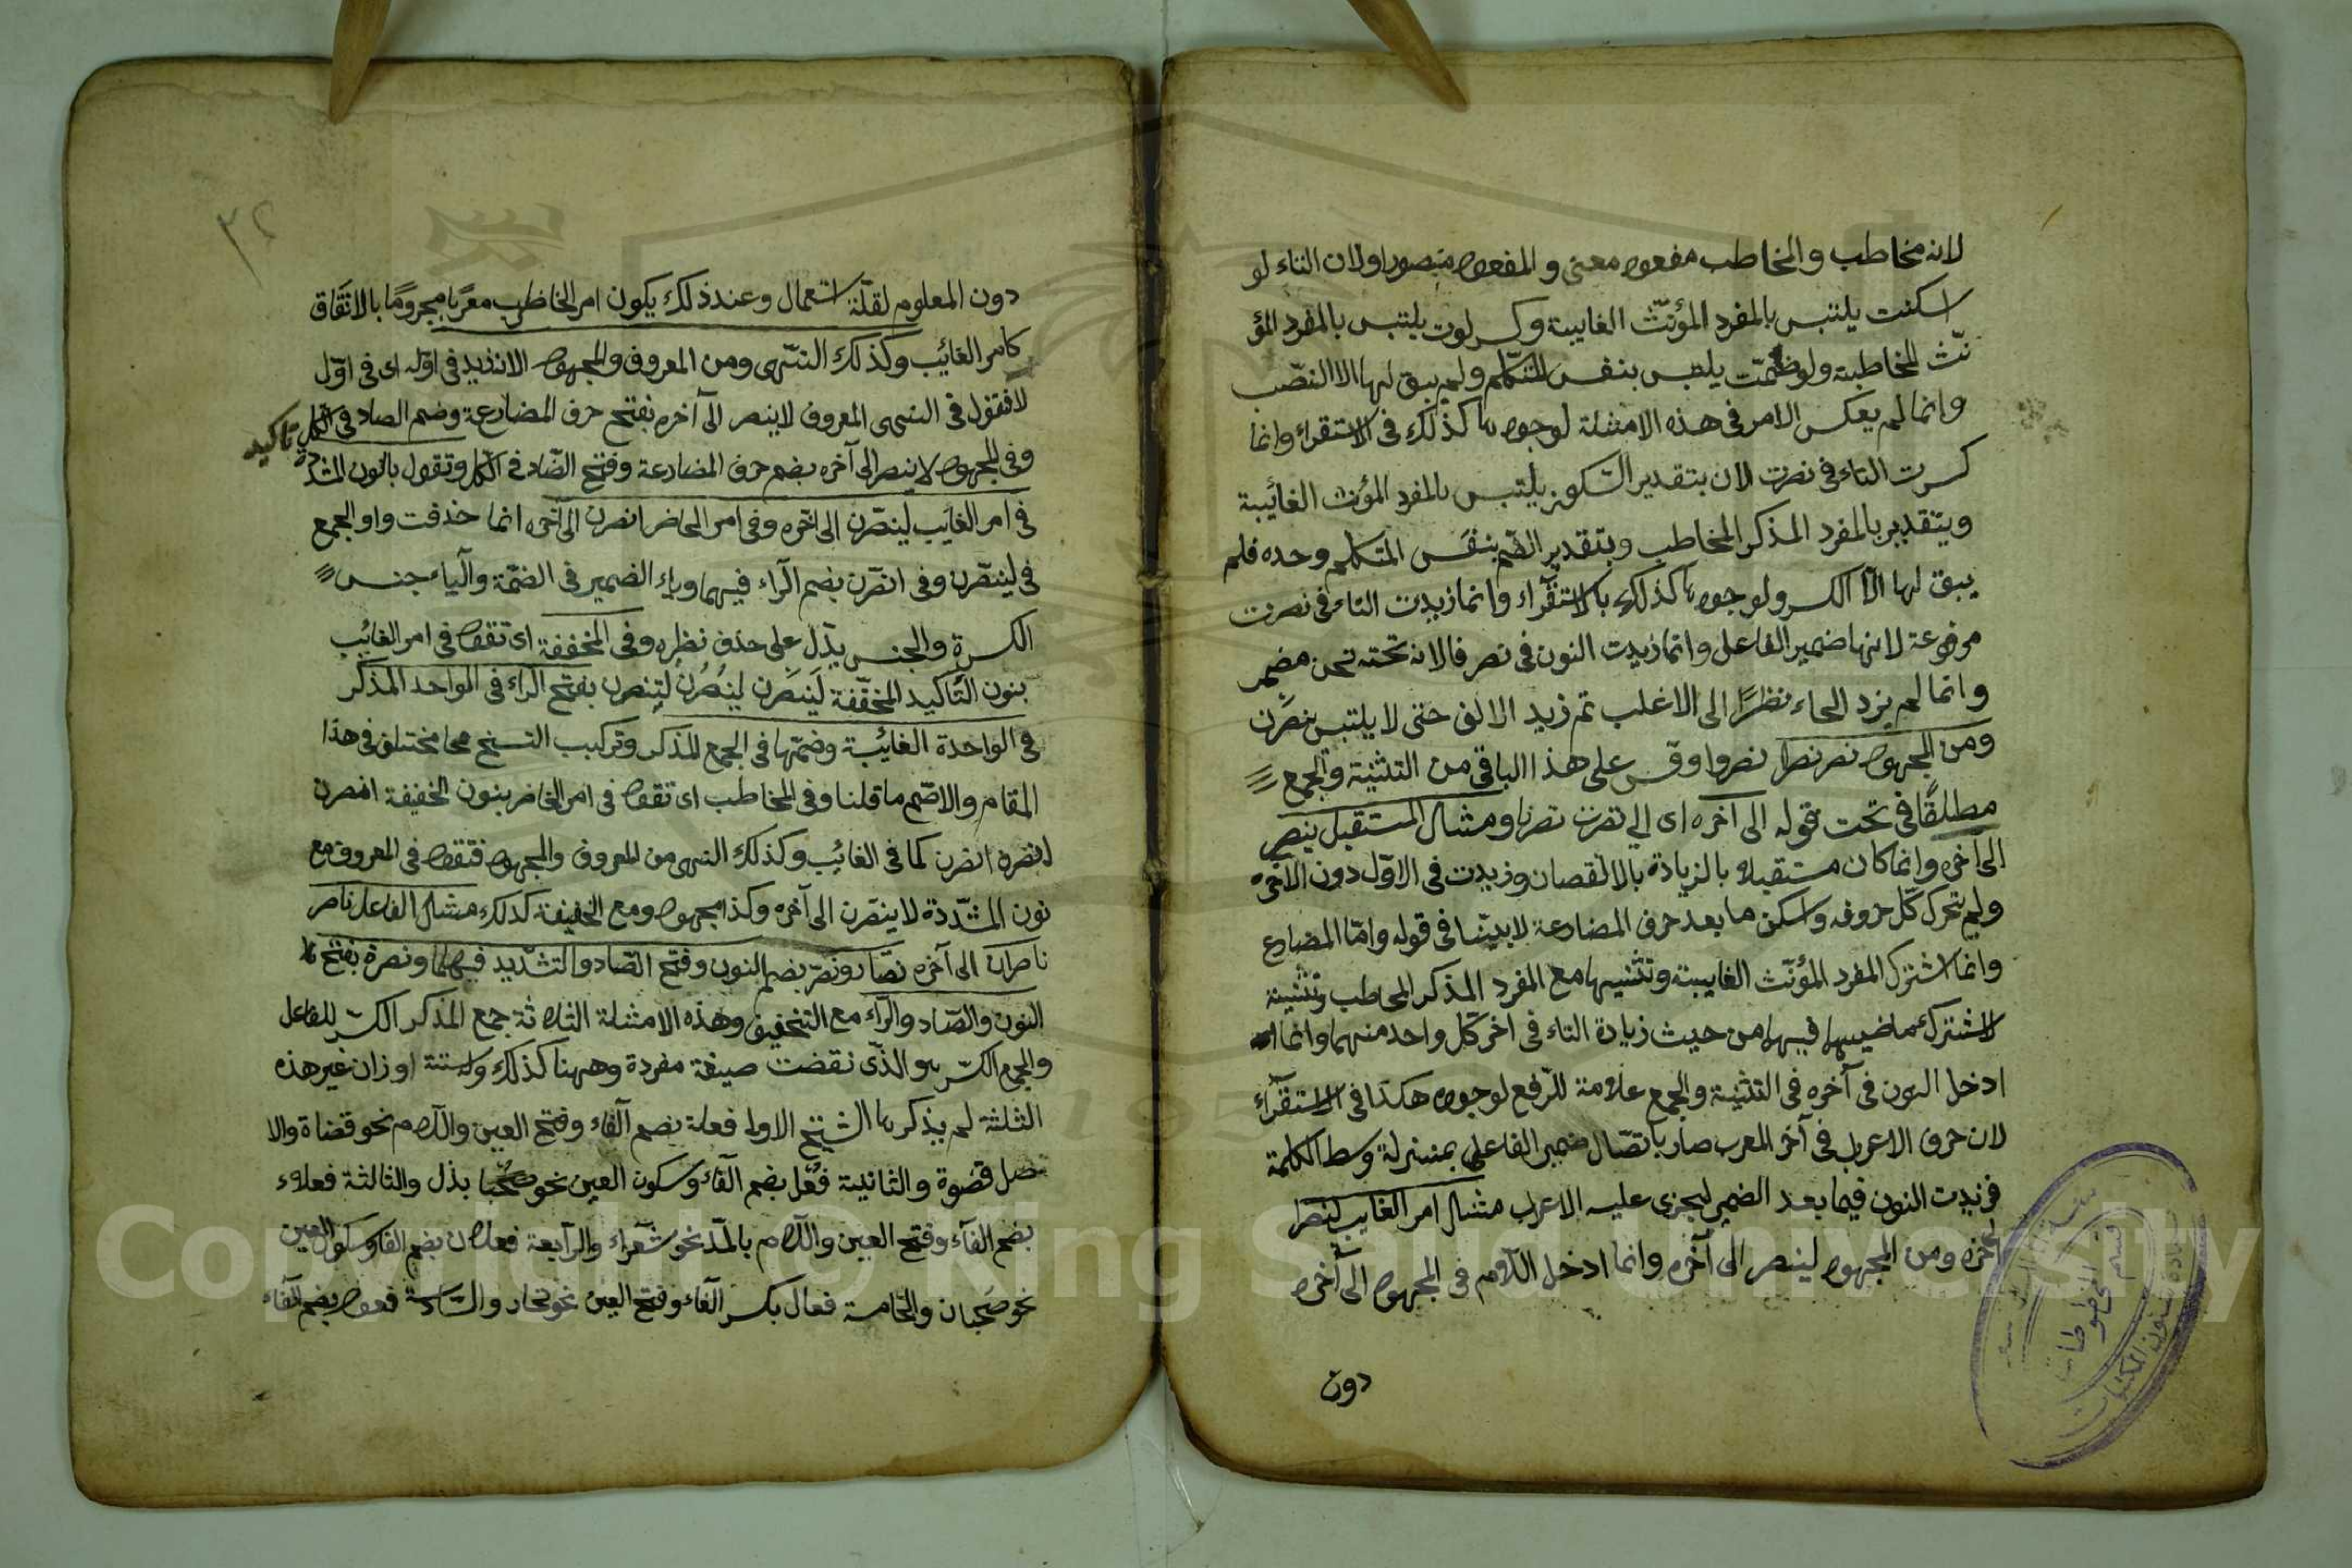 لانه مخاطب والمخاطب مفعول معنى والمفعول منصوب اولان التاء لو
اسكنت يلتبس بالمفرد المؤنّث الغايبة وكسر لوت يلتبس بالمفرد المؤ
نّث المخاطبة ولو ضمّت يلتبس بنفس المتكلّم ولم يبق لها الا النصب
وانما لم يعكس الامر فى هذه الامثلة لوجوها كذلك فى الاستقراء وانما
كسرت التاء فى نصرت لان بتقدير السّكون يلتبس بالمفرد المؤنث الغائيبة
وبتقدير بالمفرد المذكر المخاطب وبتقدير الضّم بنفس المتكلم وحده فلم
يبق لها الاّ الكسر ولوجوها كذلك بالاستقرآء وانما زيدت التاء فى نصرت
مرفوعة لانها ضمير الفاعل وانما زيدت النون فى نصرنا لانه تحته نحن مضمر
وانما لم يزد الحاء نظرًا الى الاغلب ثم زيد الالف حتى لا يلتبس بنصرن
ومن المجهول نصر نصرا نصروا وقس على هذا الباقى من التثنية والجمع
مطلقًا فى تحت قوله الى آخره اى الى نصرت نصرنا ومثال المستقبل ينصر
الى آخره وانما كان مستقبلا بالزيادة بالالنقصان وزيدت فى الاوّل دون الآخره
ولم يتحرك كلّ حروفه واسكن ما بعد حرف المضارعة لا بيّنا فى قوله وامّا المضارع
وانما اشترك المفرد المؤنّث الغايبة وتثنيها مع المفرد المذكر المخاطب وتثنية
لاشتراك ماضيهما فيها من حيث زيادة التاء فى اخر كلّ واحد منهما وانما
ادخل النون فى آخره فى التثنية والجمع علامة للرّفع لوجوه هكذا فى الاستقرآء
لان حرف الاعراب فى آخر المعرب صار باتصّال ضمير الفاعل بمنزلة وسط الكلمة
فزيدت النون فيما بعد الضمير ليجزى عليه الاعراب مثال امر الغايب لينصر الى
آخره ومن المجهول لينصر الى آخره وانما ادخل اللّام فى المجهول الى آخره
دون
٣٢
دون المعلوم لقلّة استعمال وعند ذلك يكون امر المخاطب معربا مجرومًا بالاتّفاق
كامر الغائب وكذلك النّهى ومن المعروف والمجهول الا انه زيد فى اوّله اى فى اوّل
لا فتقول فى النهى المعروف لا ينصر الى آخره بفتح حرف المضارعة وضم الصاد فى الكل
وفى المجهول لا ينصر الى آخره بضم حرف المضارعة وفتح الصّاد فى الكل وتقول بالنون المشددة
تاكيد
فى امر الغايب لينصّرن الى آخره وفى امر الحاضر انصرن الى آخره انما حذفت واو الجمع
فى لينصرن وفى انصرن بضم الرّاء فيهما وياء الضمير فى الضمّة والياء جنس
الكسرة والجنس يدّل على حذف نظره وفى المخففة اى تقول فى امر الغائب
بنون التأكيد المخفّفة لينصرن لينصرن لتنصرن بفتح الراء فى الواحد المذكر
فى الواحدة الغائبة وضمّها فى الجمع المذكر وتركيب النسخ مما مختلف فى هذا
المقام والاصّح ما قلنا وفى المخاطب اى تقول فى امر الحاضر بنون الخفيفة انصرن
انصرن انصرن كما فى الغائب وكذلك النهى من المعروف والمجهول فتقول فى المعروف مع
نون المشدّدة لا ينصرن الى آخره وكذا مجهول ومع الخفيفة كذلك مثال الفاعل ناصر
ناصران الى آخره نصّار ونصّر بضم النون وفتح الصّاد والتشديد فيهما ونصرة بفتح
النون والصّاد والرّاء مع التخفيف وهذه الامثلة الثلاثة جمع المذكر الكسّر للفاعل
والجمع الكسّر هو الذّى نقضت صيغة مفردة وههنا كذلك وستة اوزان غير هذه
الثلثة لم يذكرها الشيخ الاولى فعلة بضم الفاء وفتح العين واللام نحو قضاة والا
صل قضوة والثانية فعُل بضم الفآء وسكون العين نحو بذل والثالثة فعلاء
بضم الفآء وفتح العين واللّام بالمدّ نحو شعراء والرابعة فعلان بضم الفا وسكون العين
نحو صحبان والخامسة فعال بكسر الفآء وفتح العين نحو تجار والسّادسة فعول بضم الفآء
قسم المخطوطات
عمادة شؤون المكتبات
Copyright © King Saud University